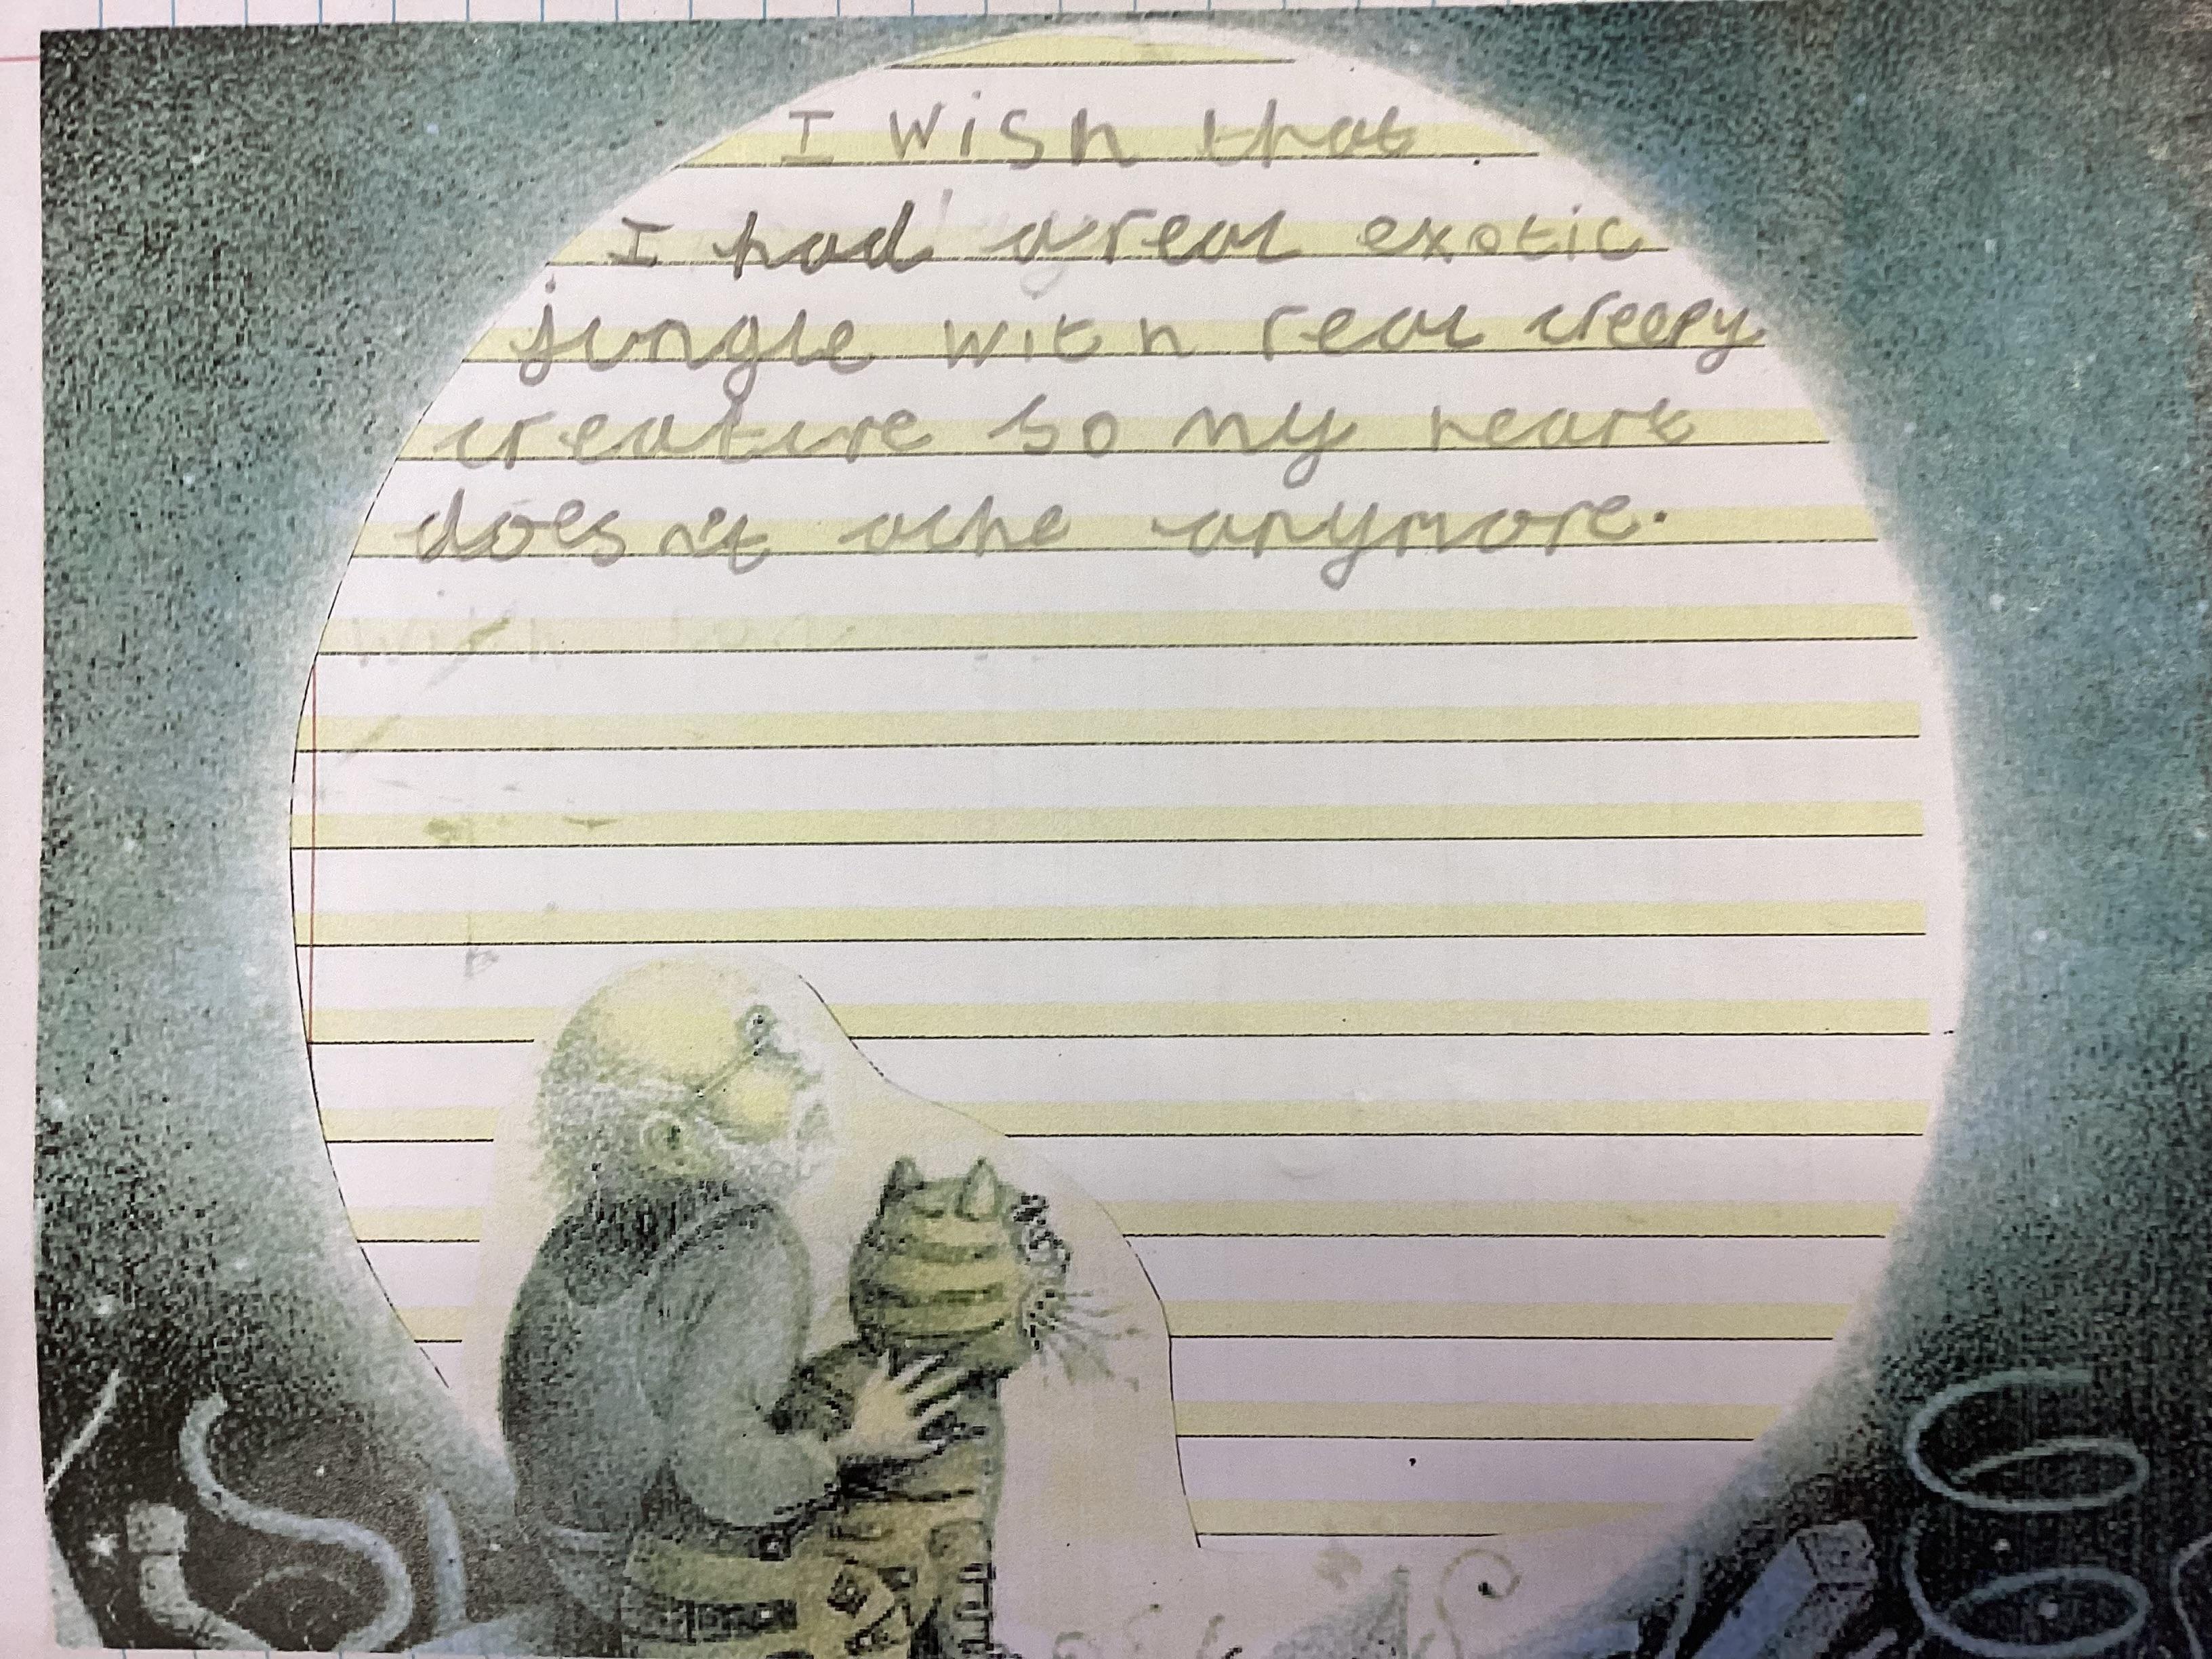 I wish that
I had a real exotic
jungle with real creepy
creature so my heart
doesn't ache anymore.